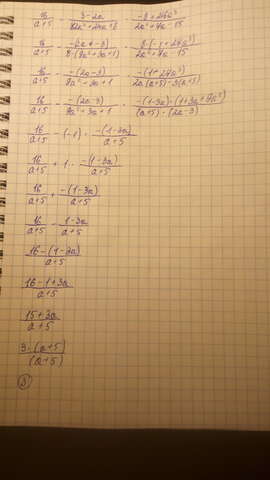 16/(a+5) - (3-2a)/(72a²+24a+8) · (-8+216a³)/(2a²+7a-15)
16/(a+5) - (-(2a-3))/(8·(9a²+3a+1)) · (8·(-1+27a³))/(2a²+7a-15)
16/(a+5) - (-(2a-3))/(9a²+3a+1) · (-(1-27a³))/(2a(a+5)-3(a+5))
16/(a+5) - (-(2a-3))/(9a²+3a+1) · (-(1-3a)·(1+3a+9a²))/((a+5)·(2a-3))
16/(a+5) - (-1)·(-(1-3a))/(a+5)
16/(a+5) + 1·(-(1-3a))/(a+5)
16/(a+5) + (-(1-3a))/(a+5)
16/(a+5) - (1-3a)/(a+5)
(16-(1-3a))/(a+5)
(16-1+3a)/(a+5)
(15+3a)/(a+5)
(3·(a+5))/((a+5))
3